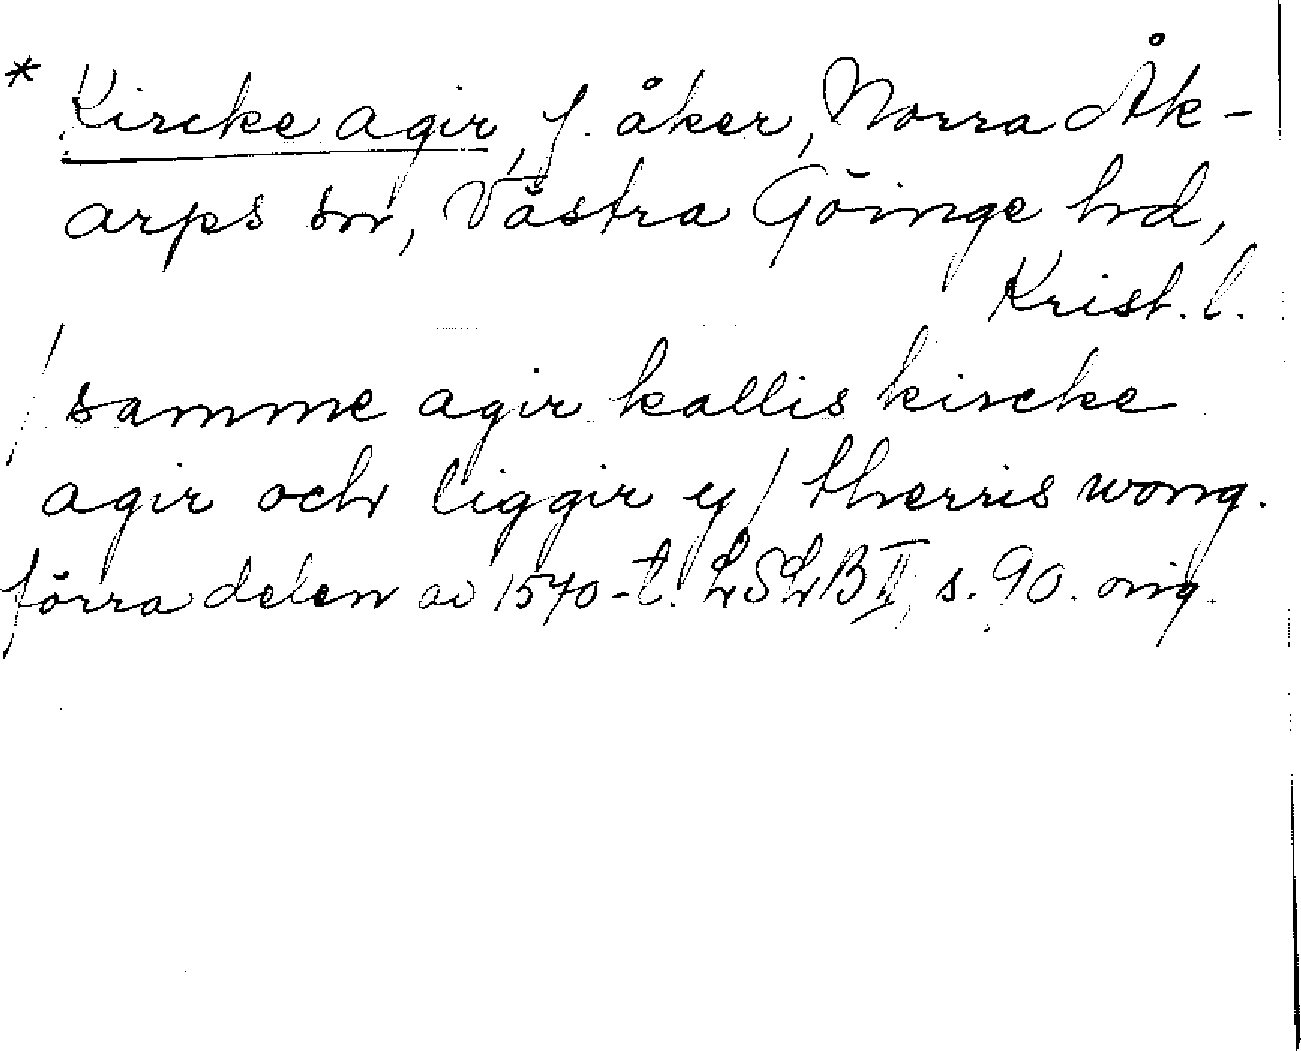 * Kircke agir, f. åker, Norra Åk-
arps sn, Västra Göinge hd,
Krist. l.
/ samme agir kallis kircke
agir och liggir y / therris wong.
förra delen av 1570-t. LSLB II, s. 90. orig.